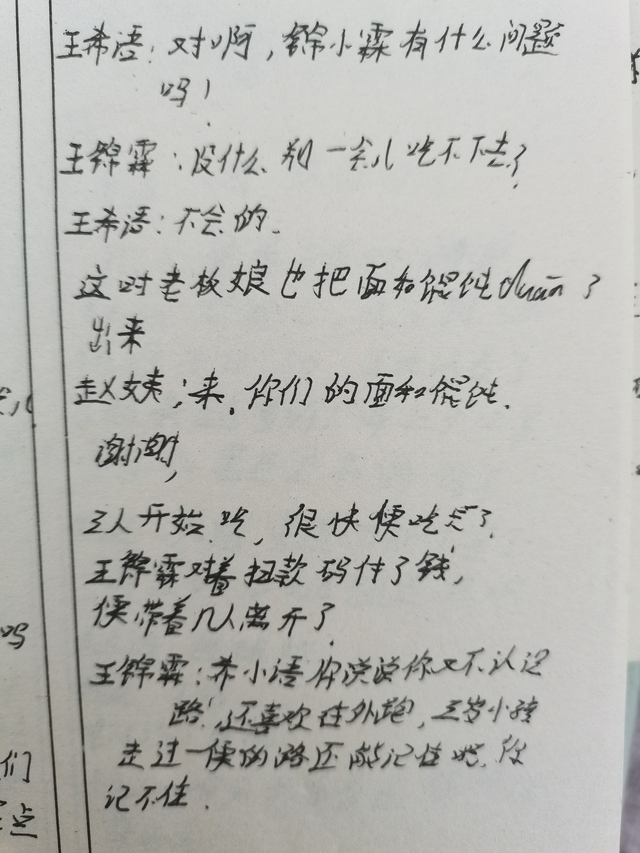 王希语：对啊，锦小霖有什么问题
吗！
王锦霖：没什么别一会儿吃不下去了
王希语：不会的.
这时老板娘也把面和馄饨duān了
出来
赵姨：来.你们的面和馄饨.
谢谢,
三人开始吃，很快便吃完了.
王锦霖对着扫款码付了钱,
便带着几人离开了
王锦霖：希小语你说说你又不认识
路，还喜欢往外跑，三岁小孩
走过一便的路还能记住呢.你
记不住.
吗
们
点